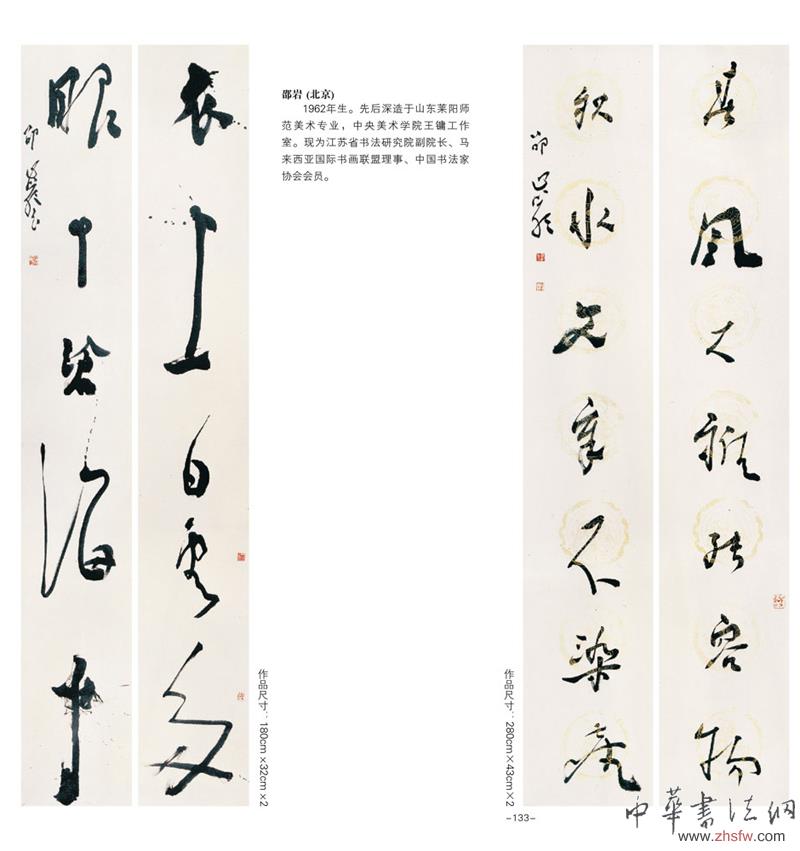 衣上白雲多
眼中滄海小
邵岩
邵岩 (北京)
1962年生。先后深造于山东莱阳师
范美术专业，中央美术学院王镛工作
室。现为江苏省书法研究院副院长、马
来西亚国际书画联盟理事、中国书法家
协会会员。
作品尺寸：180cm×32cm×2
春風大雅能容物
秋水文章不染塵
邵岩
作品尺寸：280cm×43cm×2
-133-
中華書法網
www.zhsfw.com